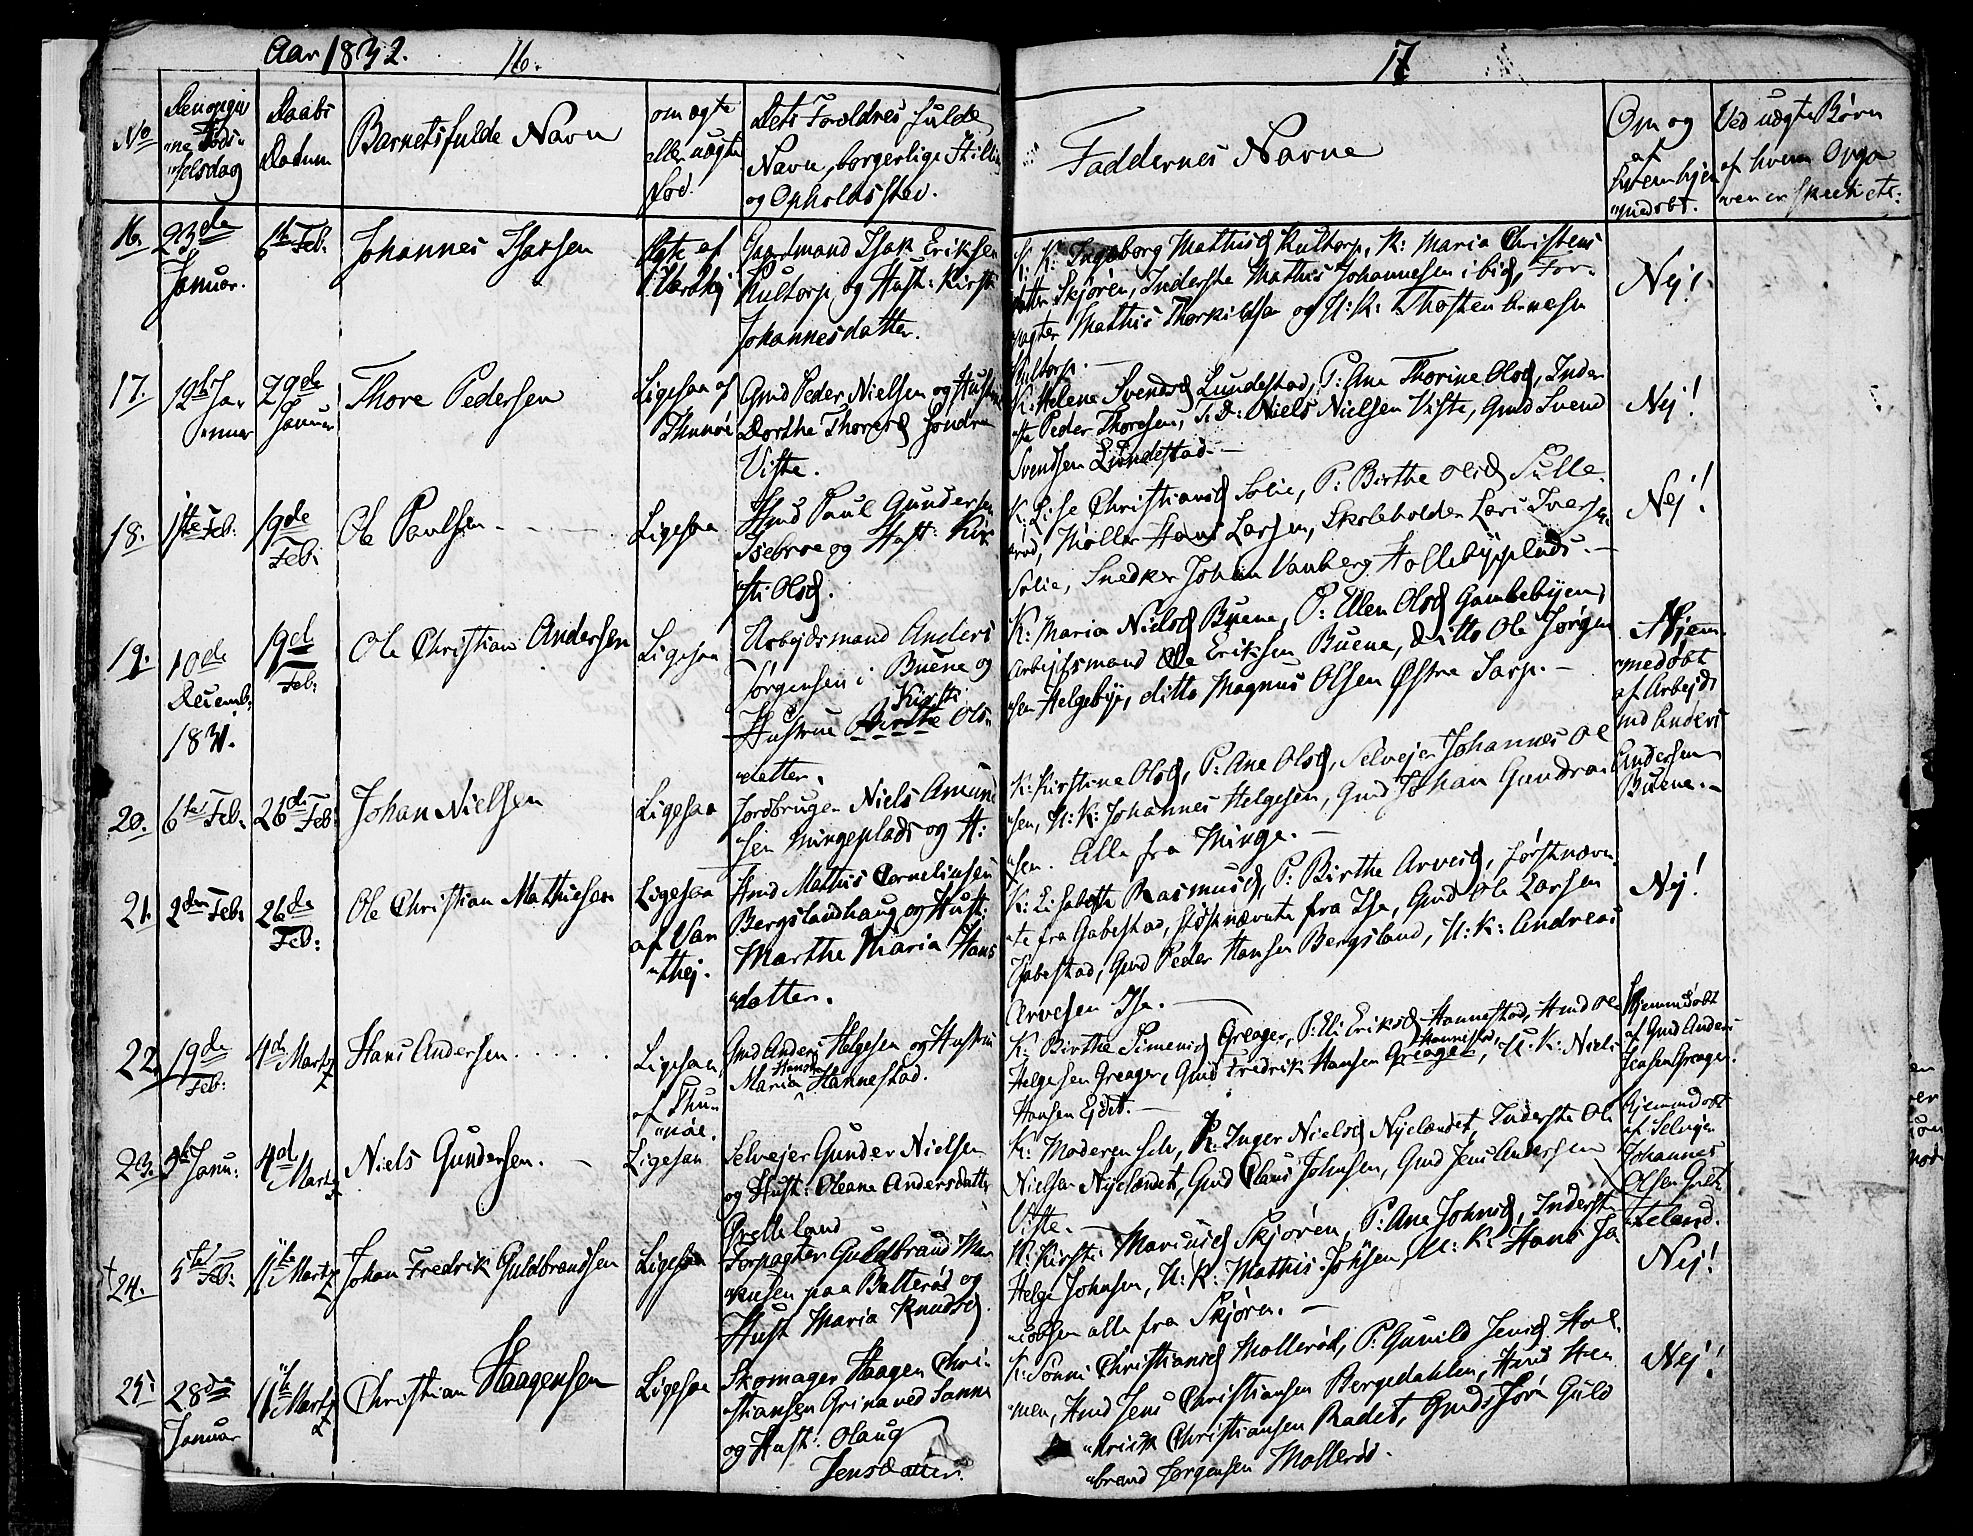 Aar 1832.
16.
17
No
Den opgiv
"ne Føds=
"selsdag
Daabs
Datum
Barnets fulde Navn
om ægte
eller uægte
Fød.
Dets Forældres fulde
Navn, borgerlige Stilling
og Opholdssted.
Faddernes Navne
Om og
af
hvem hjem
"medøbt.
Ved uægte Børn
af hvem Opga
ven er skeet etc:
16.
23de
Januar.
6te Feb:
Johannes Isaksen
Ægte af
Gaardmand Isak Eriksen
Kultorp og Hust: Kirsti
Johannesdatter.
K: Ingeborg Mathisd Kultorp, K: Maria Christens
datter Skjøren, Inderste Mathis Johannesen ibid, For-
pagter Mathis Thorkildsen og U: K: Thosten Arnesen
Kultorp. —
Nej!
17.
12te Ja
"nuar
29de
Januar
Thore Pedersen
Ligesaa af
Thunøe
Gmd Peder Nielsen og Hustru
Dorthe Thoresd Søndre
Viste.
K: Helene Svendsd Lundestad, P: Ane Thorine Olsd, Inder
ste Peder Thoresen, S: D: Niels Nielsen Viste, Gmd Svend
Svendsen Lundestad. —
Nej!
18.
1ste Feb:
19de
Feb:
Ole Paulsen - - -
Ligesaa
Hmd Paul Gundersen
Isebroe og Hust: Kir
sti Olsd.
K: Lise Christiansd Solie, P: Birthe Olisd Sulle-
rød, Møller Hans Larsen, Skoleholder Lars Iversen
Solie, Snedker Johan Vanberg Hollebyeplads. —
Nej!
19.
10de
Decemb:
1831.
19d
Feb:
Ole Christian Andersen
Ligesaa
Arbejdsmand Anders
Jørgensen i Buene og
Kirsti
Hustrue Birthe Ols=
"datter.
K: Maria Nielsd Buene, P: Ellen Olsd Gamlebyen,
Arbejdsmand Ole Eriksen Buene, ditto Ole Jørgen
sen Helgebye, ditto Magnus Olsen Østre Sarp. —
Hjem
"medøbt
af Arbejds
md Anders
Andersen
Buene. —
20.
6te Feb:
26de Feb:
Johan Nielsen
Ligesaa
Jordbruger Niels Amund
"sen Mingeplads og H:
K: Kirstine Olsd, P: Ane Olsd, Selvejer Johannes Ol
"sen, U: K: Johannes Helgesen, Gmd Johan Gundra
"sen. Alle fra Minge. —
21.
2den Feb:
26de
Feb:
Ole Christian Mathiesen
Ligesaa
af Van
"thej.
Hmd Mathis Corneliusen
Bergslandhaug og Hust:
Marthe Maria Hans
"datter.
K: Lisabeth Rasmusd, P: Birthe Arvesd, førstnævn
"te fra Gabestad, sidstnævnte fra Ise, Gmd Ole Larsen
Gabestad, Gmd Peder Hansen Bergsland, U: K: Andreas
Arvesen Ise. —
Nej!
22.
19de
Feb:
4de Martz
Hans Andersen . . . . .
Ligesaa
af Thu
"nøe.
Gmd Anders Helgesen og Hustru
Maria Hansd Hannestad.
K: Birthe Simensd Greager, P: Eli Eriksd Hannestad, Hmd Ole
Helgesen Greager, Gmd Fredrik Hansen Greager Hannestad, U: K: Niels
Hansen Eidet. —
Hjemmedøbt
af Gmd Anders
Jensen Greager.
23.
9de Janu:
4d Martz
Niels Gundersen. —
Ligesaa
Selvejer Gunder Nielsen
og Hust: Oleane Andersdatter
Grelleland
K: Moderen selv, P: Inger Nielsd Nyelandet, Inderste Ole
Nielsen Nyelandet, Gmd Claus Johnsen, Gmd Jens Andersen
Viste. —
Hjemmedøbt
af Selvejer
Johannes
Olsen Grel
leland.
24.
5te Feb:
11te Martz
Johan Fredrik Guldbrandsen
Ligesaa
Forpagter Guldbrand Mar
"kusen paa Batterød og
Hust Maria Knudsd.
K: Kirsti Mariusd Skjøren, P: Ane Johnsd, Inderst
Helge Johnsen, U: K: Mathis Johsen, U: K: Hans Ja
"cobsen alle fra Skjøren. —
Nej!
25.
28de
Januar
11te Martz
Christian Haagensen
Ligesaa
Skomager Haagen Chri-
"stiansen Grina ved Sannes
og Hust: Olaug
Jensdatter.
K: Sønni Christiansd Mollerød, P: Gunild Jensd Hol-
men, Hmd Jens Christiansen Bergedahlen, Hmd Hen
"drick Christiansen Radet, Gmds Søn Guld
"brand Jørgensen Mollerød.
Nej!